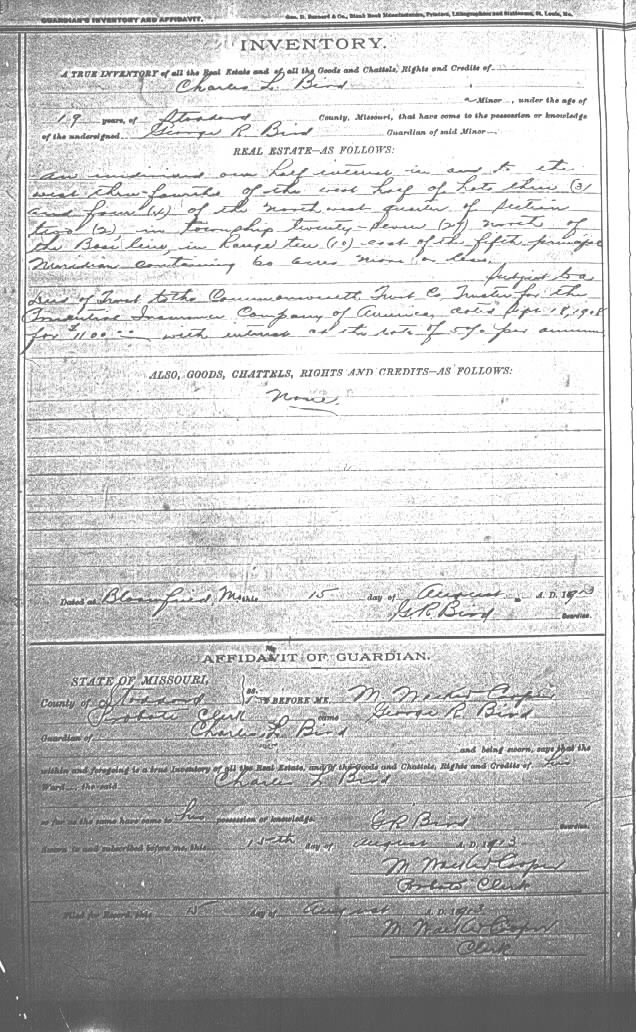 GUARDIAN'S INVENTORY AND AFFIDAVIT.
Geo. D. Barnard & Co., Blank Book Manufacturers, Printers, Lithographers and Stationers, St. Louis, Mo.
INVENTORY.
A TRUE INVENTORY of all the Real Estate and of all the Goods and Chattels, Rights and Credits of
Charles L. Bird
a Minor, under the age of
19 years, of Stoddard County, Missouri, that have come to the possession or knowledge
of the undersigned George R Bird Guardian of said Minor
REAL ESTATE—AS FOLLOWS:
An undivided one half interest in and to the
west three-fourths of the west half of Lots three (3)
and four (4) of the north west quarter of Section
two (2) in township twenty-seven (27) north of
the Base line, in Range ten (10) east of the fifth principal
Meridian containing 60 acres more or less.
Subject to a
Deed of Trust to the Commonwealth Trust Co, Trustee for the
Prudential Insurance Company of America, dated Sept 18, 1908
for $1100 with interest at the rate of 5% per annum
ALSO, GOODS, CHATTELS, RIGHTS AND CREDITS—AS FOLLOWS:
None
Dated at Bloomfield, Mo this 15 day of August A. D. 1913
G R Bird
Guardian.
AFFIDAVIT OF GUARDIAN.
STATE OF MISSOURI,
County of Stoddard ss. BEFORE ME, M. Walker Cooper
Probate Clerk came George R. Bird
Guardian of Charles L. Bird
and being sworn, says that the
within and foregoing is a true Inventory of all the Real Estate, and of the Goods and Chattels, Rights and Credits of his
Ward, the said Charles L Bird
so far as the same have come to his possession or knowledge. G R Bird Guardian.
Sworn to and subscribed before me, this 15th day of August A. D. 1913
M Walker Cooper
Probate Clerk
Filed for Record, this 15 day of August A. D. 1913
M Walker Cooper
Clerk